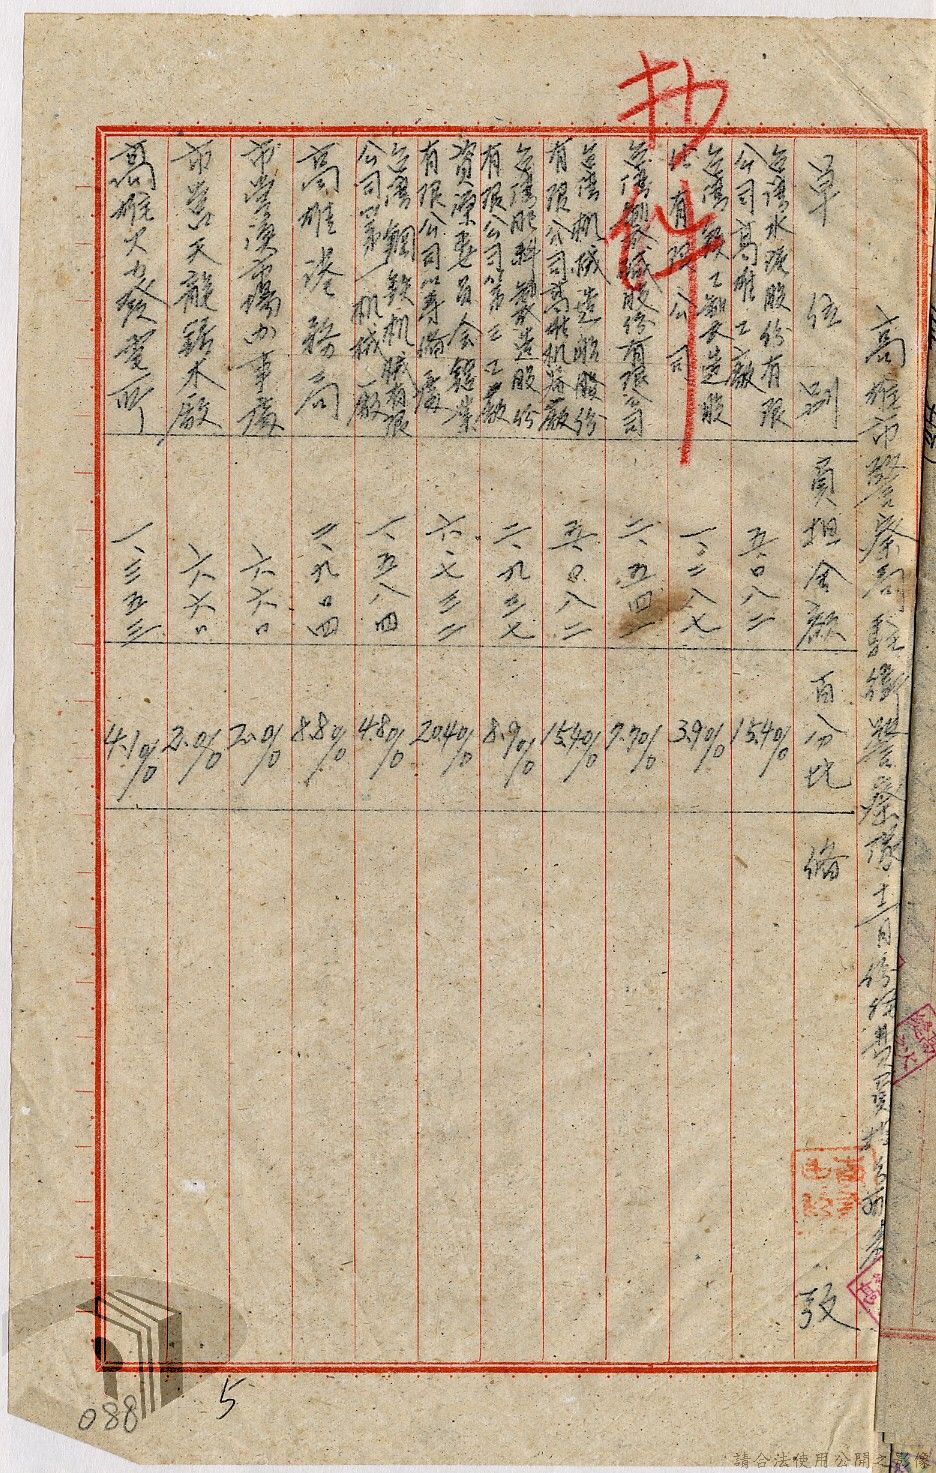 抄件
高雄市警察局駐衛警察隊十二月份
單位別 負担金額 百分比 備 攷
台灣水泥股份有限公司高雄工廠 五、〇八二 15.4%
公司 一、二八七 3.9%
台灣 股份有限公司 二、五四一 7.7%
台灣机械造船股份有限公司高雄机器廠 五、〇八二 15.4%
台灣肥料製造股份有限公司第三工廠 二、九三七 8.9%
資源委員会鋁業有限公司籌備處 六、七三二 20.4%
台灣鋼鉄机械有限公司第一机械廠 一、五八四 4.8%
高雄港務局 二、九〇四 8.8%
市營漁市場办事處 六六〇 2.0%
市營天龍鋸木廠 六六〇 2.0%
高雄火力發電所 一、三五三 4.1%
5
088
請合法使用公開之影像